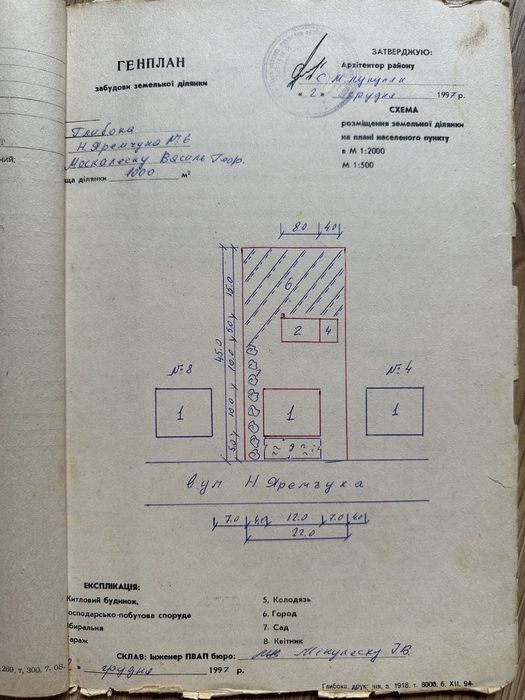 ГЕНПЛАН
забудови земельної ділянки
ЗАТВЕРДЖУЮ:
Архітектор району
"2" грудня 1997 р.
СХЕМА
розміщення земельної ділянки
на плані населеного пункту
в М 1:2000
М 1:500
Глибока
Н Яремчука № 6
Москалеску Василь Геор.
ща ділянки 1000 м²
8.0 4.0
6
15.0
2 4
5.0
45.0
10.0
№ 8
№ 4
1
1
1
10.0
5.0
вул Н Яремчука
7.0 4.0 12.0 7.0 4.0
22.0
ЕКСПЛІКАЦІЯ:
Житловий будинок,
осподарсько-побутова споруда
биральня
араж
5. Колодязь
6. Город
7. Сад
8. Квітник
СКЛАВ: Інженер ПВАП бюро: Мікулеску
грудня 1997 р.
269, т, 300, 7-08.
Глибока, друк, т. 8000, 6. XII. 94.